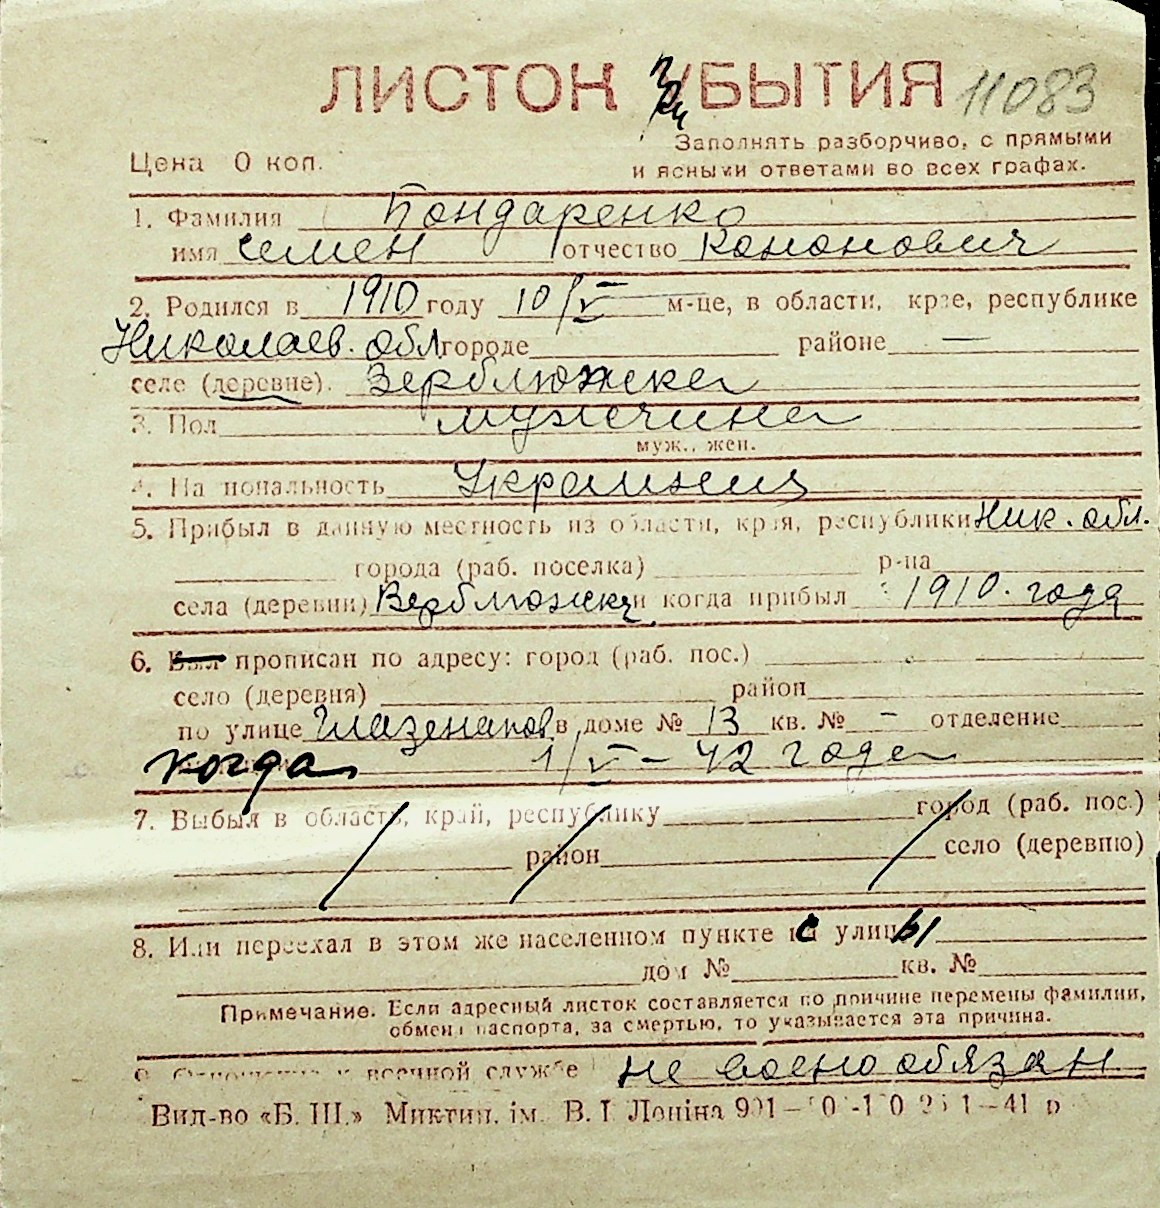 ЛИСТОК ПРИБЫТИЯ 11083
Цена 0 коп.
Заполнять разборчиво, с прямыми
и ясными ответами во всех графах.
1. Фамилия Бондаренко
имя Семен отчество Кононович
2. Родился в 1910 году 10/V м-це, в области, крае, республике
Николаев. обл городе районе —
селе (деревне). Верблюжка
3. Пол мужчина
муж., жен.
4. Национальность Украинец
5. Прибыл в данную местность из области, края, республики Ник. обл.
города (раб. поселка) р-на
села (деревни) Верблюжки и когда прибыл 1910. года
6. Был прописан по адресу: город (раб. пос.)
село (деревня) район
по улице Глазенапов в доме № 13 кв. № — отделение
когда 1/V — 42 года
7. Выбыл в область, край, республику город (раб. пос.)
район село (деревню)
8. Или переехал в этом же населенном пункте с улицы
дом № кв. №
Примечание. Если адресный листок составляется по причине перемены фамилии,
обмена паспорта, за смертью, то указывается эта причина.
9. Отношение к военной службе не воено обязан
Вид-во «Б. Ш.» Миктип. ім. В. І Лєніна